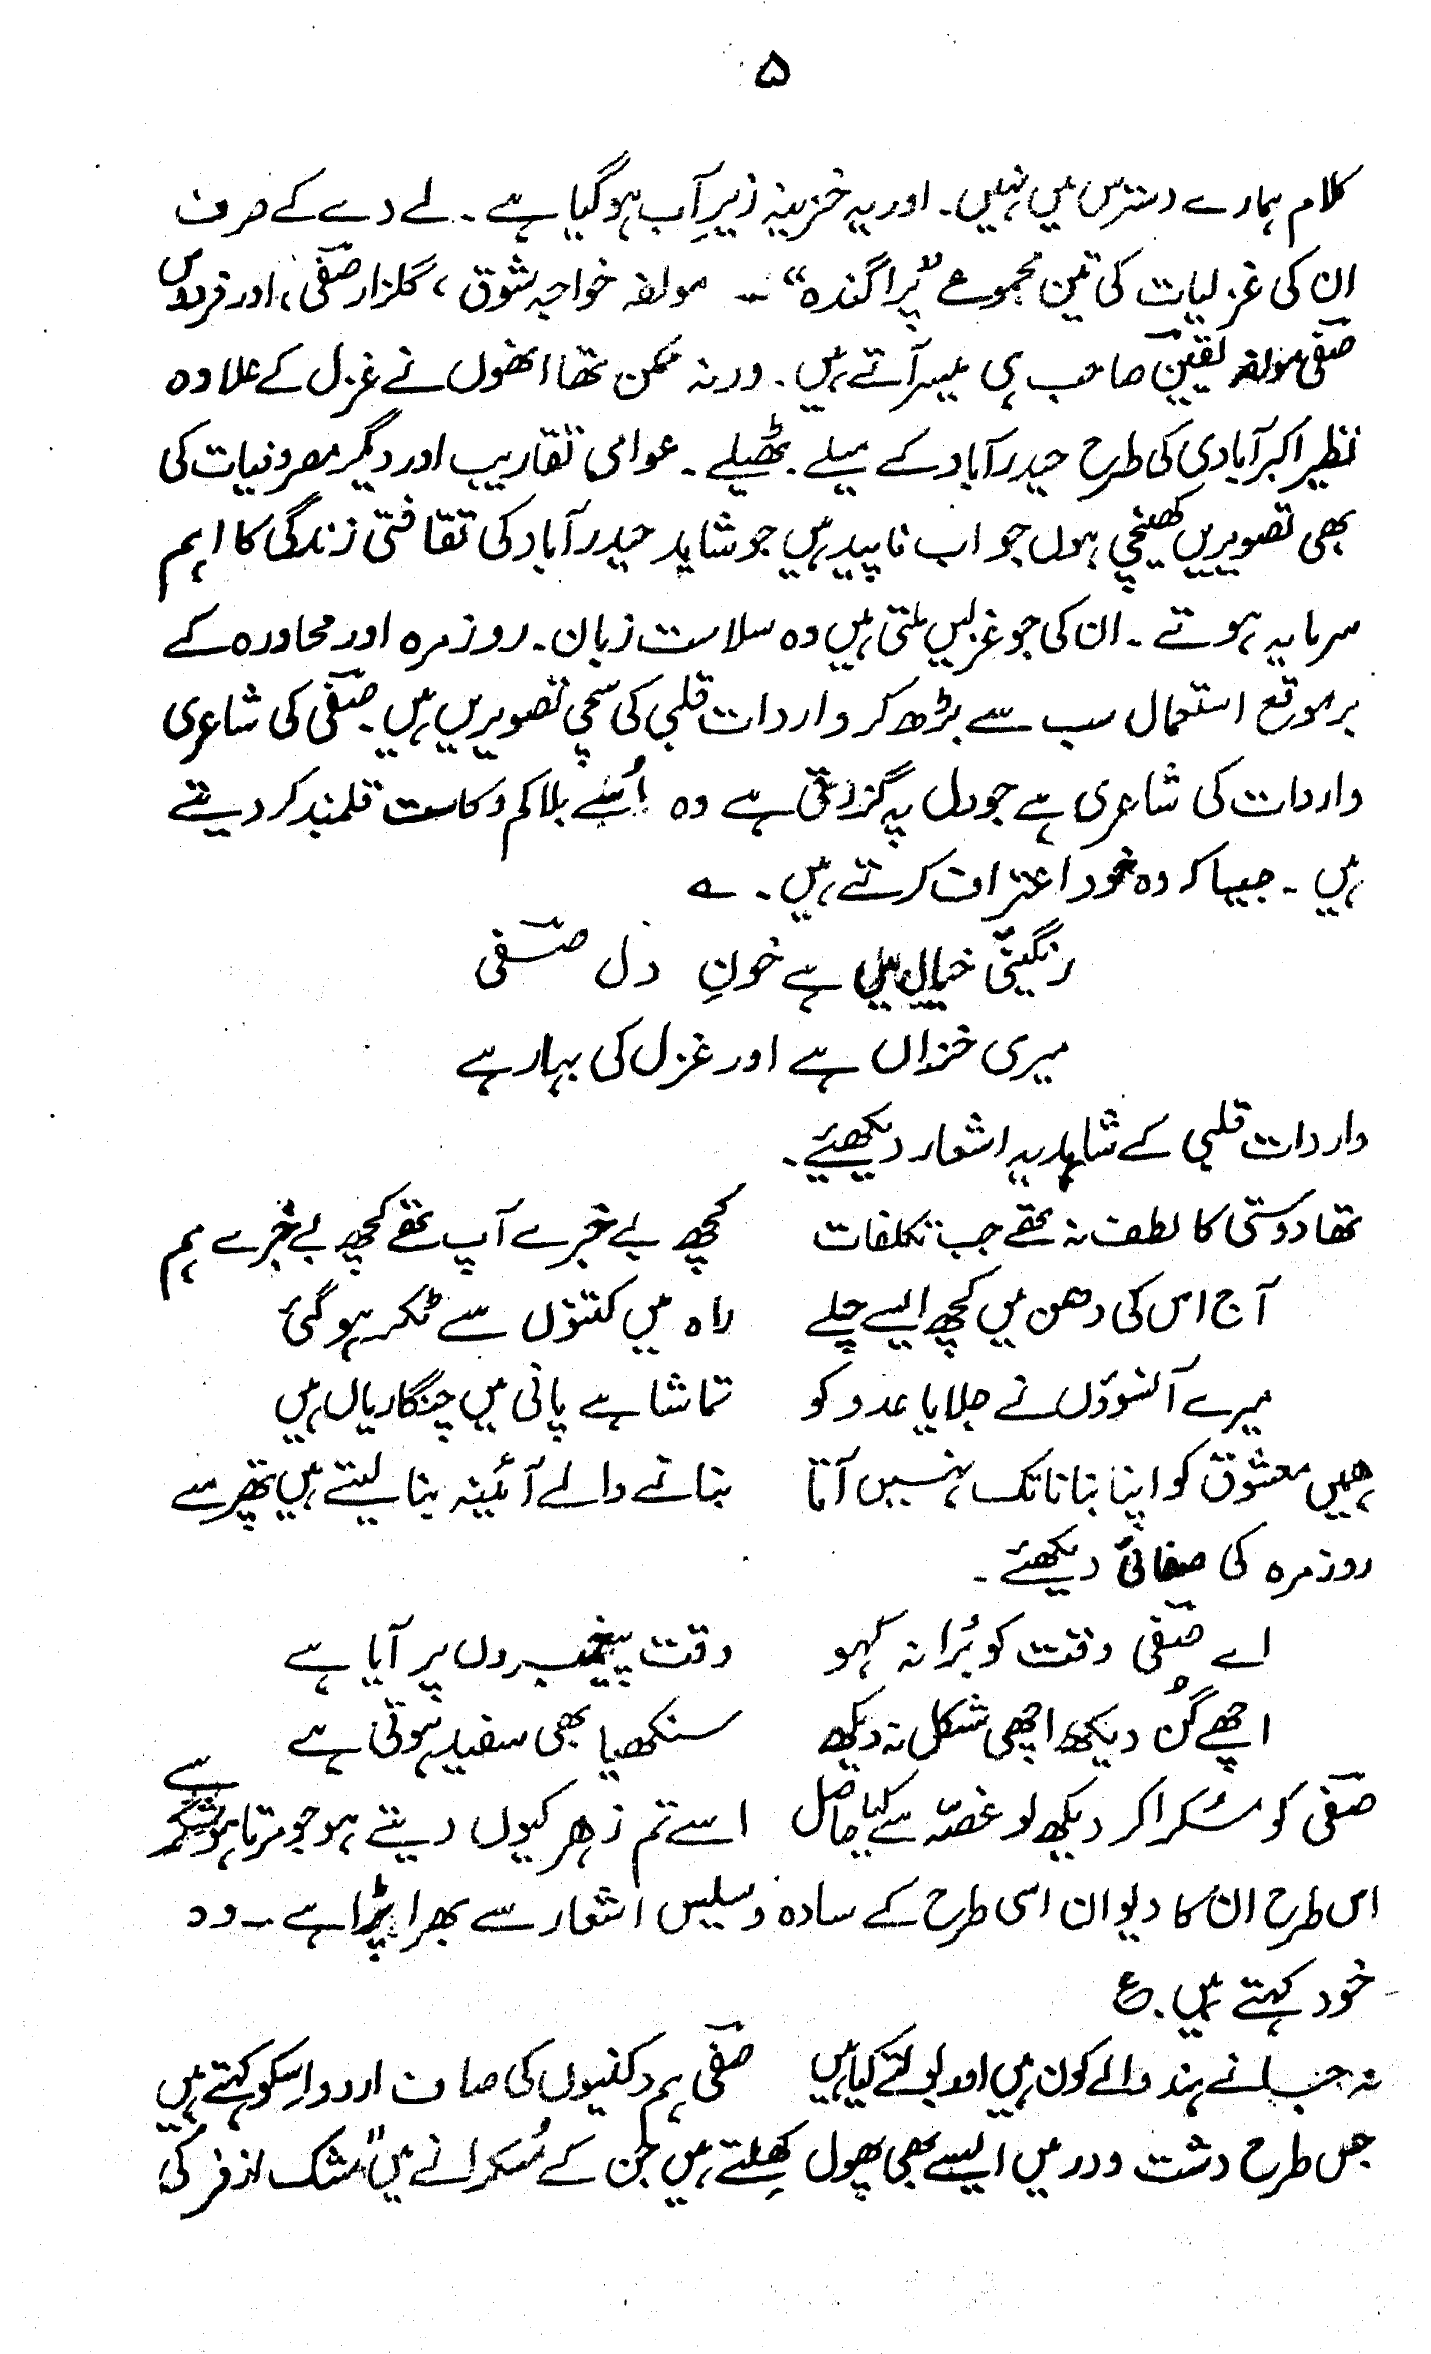 ۵
کلام ہمارے دسترس میں نہیں۔ اور یہ خزینہ زیرِ آب ہوگیا ہے۔ لے دے کے صرف
ان کی غزلیات کی تین مجموعے "پراگندہ" ـ مولفہ خواجہ شوق، گلزار صفی، اور فردوس
صفی مولفہ یقین صاحب ہی میسر آتے ہیں۔ ورنہ ممکن تھا انھوں نے غزل کے علاوہ
نظیر اکبر آبادی کی طرح حیدرآباد کے میلے۔ ٹھیلے۔ عوامی تقاریب اور دیگر مصروفیات کی
بھی تصویریں کھینچی ہوں جو اب ناپید ہیں جو شاید حیدرآباد کی ثقافتی زندگی کا اہم
سرمایہ ہوتے۔ ان کی جو غزلیں ملتی ہیں وہ سلاست زبان۔ روزمرہ اور محاورہ کے
برموقع استعمال سب سے بڑھ کر واردات قلبی کی سچی تصویریں ہیں۔ صفی کی شاعری
واردات کی شاعری ہے جو دل پہ گزرتی ہے وہ اُسے بلا کم و کاست قلمبند کر دیتے
ہیں۔ جیسا کہ وہ خود اعتراف کرتے ہیں۔ ؎
رنگینیٔ خیال میں ہے خونِ دل صفی
میری خزاں ہے اور غزل کی بہار ہے
واردات قلبی کے شاہد یہ اشعار دیکھئیے۔
تھا دوستی کا لطف نہ تھے جب تکلفات کچھ بے خبرے آپ تھے کچھ بے خبرے ہم
آج اس کی دھن میں کچھ ایسے چلے راہ میں کتنوں سے ٹکر ہوگئی
میرے آنسوؤں نے جلایا عدو کو تماشا ہے پانی میں چنگاریاں ہیں
ہمیں معشوق کو اپنا بنانا تک نہیں آتا بنانے والے آئینہ بنا لیتے ہیں پتھر سے
روزمرہ کی صفائی دیکھئے۔
اے صفی وقت کو بُرا نہ کہو وقت پیغمبروں پر آیا ہے
اچھے گُن دیکھ اچھی شکل نہ دیکھ سنکھیا بھی سفید ہوتی ہے
صفی کو مُسکرا کر دیکھ لو غصّہ سے کیا حاصل اسے تم زھر کیوں دیتے ہو جو مرتا ہو شکر سے
اس طرح ان کا دیوان اسی طرح کے سادہ و سلیس اشعار سے بھرا پڑا ہے۔ وہ
خود کہتے ہیں۔ ع
نہ جانے ہند والے کون ہیں اور بولتے کیا ہیں صفی ہم دکنیوں کی صاف اردو اِسکو کہتے ہیں
جس طرح دشت و در میں ایسے بھی پھول کھِلتے ہیں جن کے مُسکرانے میں "مشک ازفر کی